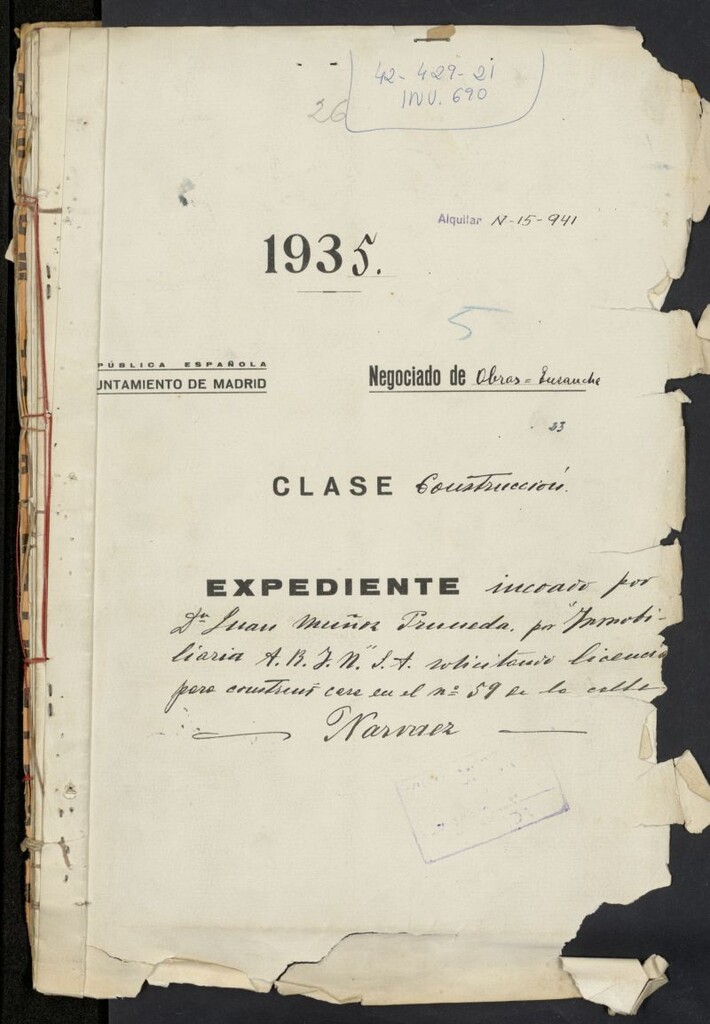 42-429-21
INV. 690
26
Alquilar N-15-941
1935.
5
PÚBLICA ESPAÑOLA
UNTAMIENTO DE MADRID
Negociado de Obras=Ensanche
23
CLASE Construcción.
EXPEDIENTE incoado por
Dn Juan Muñoz Pruneda, por "Inmobi-
liaria A.R.J.N." S.A. solicitando licencia
para construir casa en el nº 59 de la calle
Narvaez